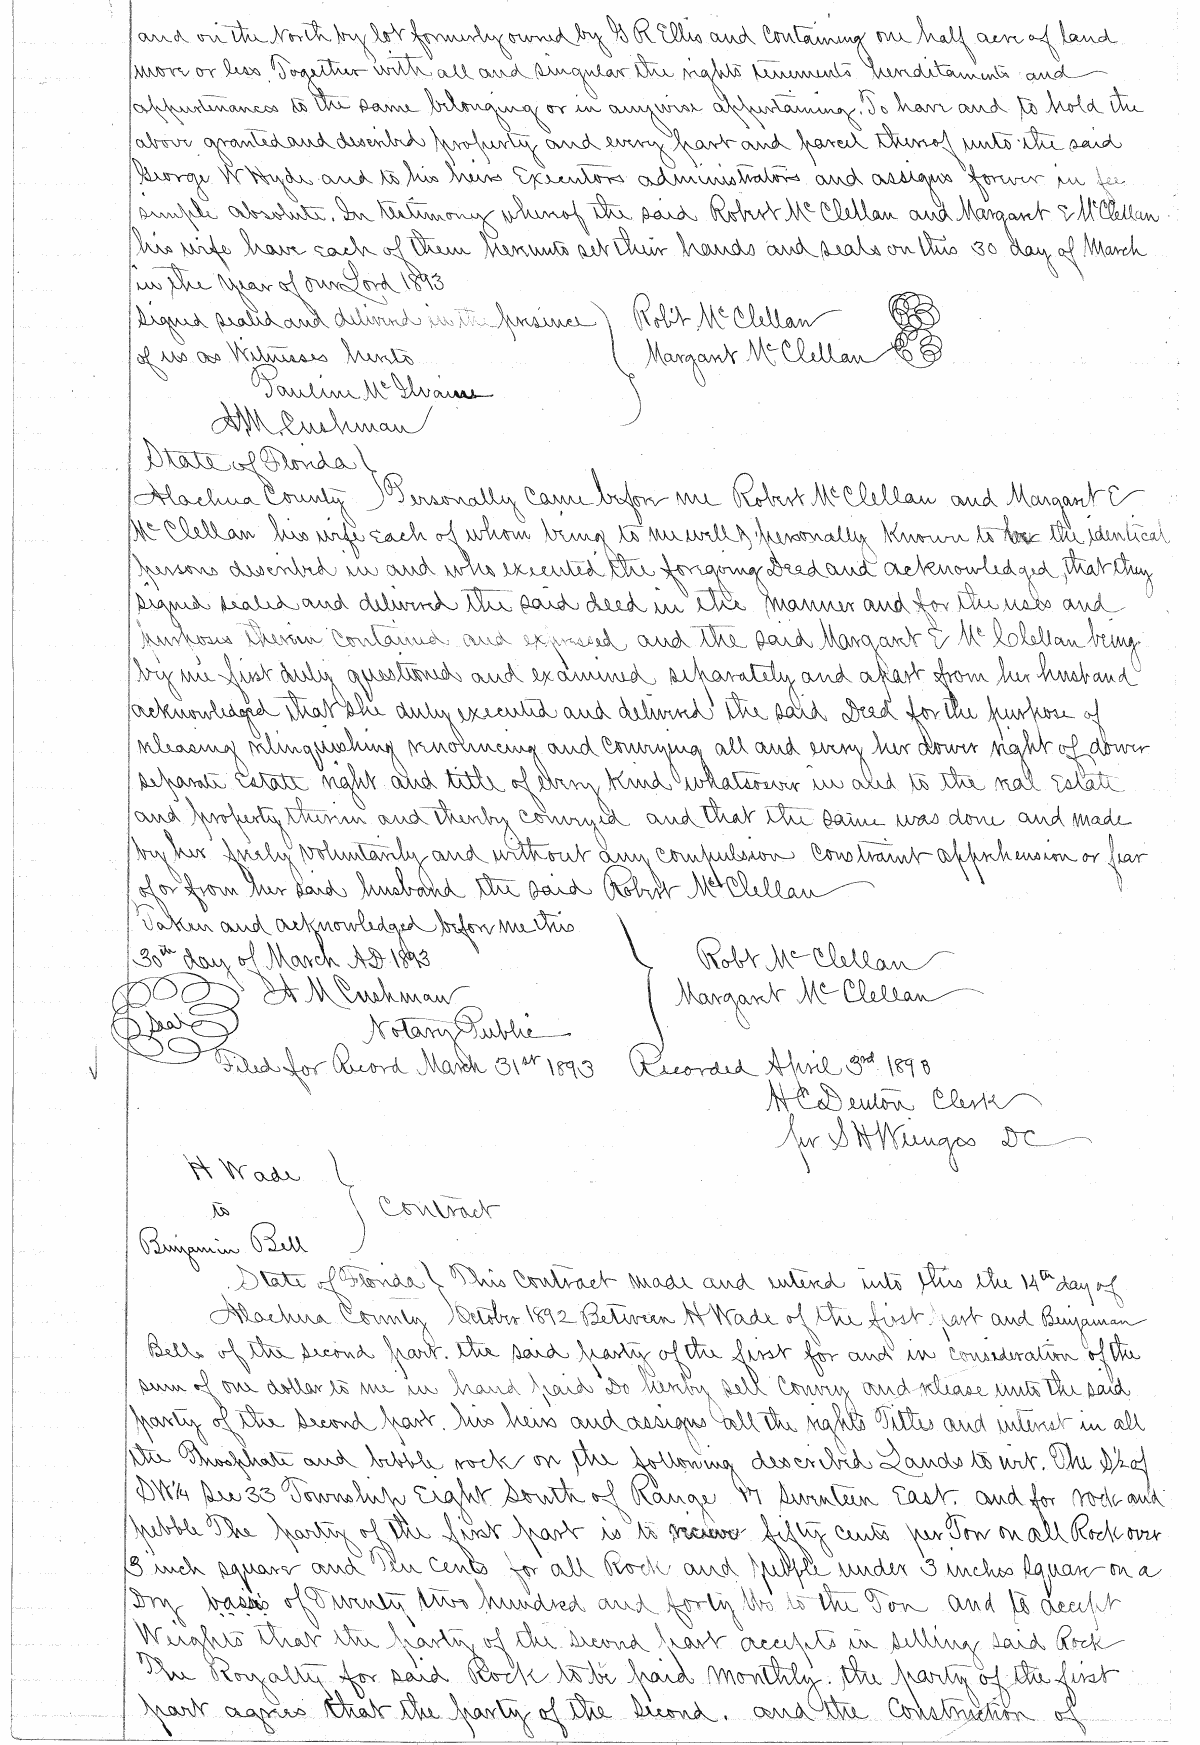 and on the North by lot formerly owned by G R Ellis and containing one half acre of land
more or less. Together with all and singular the rights tenements hereditaments and
appurtenances to the same belonging or in anywise appertaining. To have and to hold the
above granted and described property and every part and parcel thereof unto the said
George W Hyde and to his heirs Executors administrators and assigns forever in fee
simple absolute. In testimony whereof the said Robert McClellan and Margaret E McClellan
his wife have each of them hereunto set their hands and seals on this 30 day of March
in the year of our Lord 1893
Signed sealed and delivered in the presence } Robt McClellan
of us as Witnesses hereto Margaret McClellan
Pauline McIlvaine
H.M. Cushman
State of Florida }
Alachua County } Personally came before me Robert McClellan and Margaret E
McClellan his wife each of whom being to me well & personally known to be the identical
persons described in and who executed the foregoing Deed and acknowledged that they
signed sealed and delivered the said deed in the manner and for the uses and
purposes therein contained and expressed and the said Margaret E McClellan being
by me first duly questioned and examined separately and apart from her husband
acknowledged that she duly executed and delivered the said Deed for the purpose of
releasing relinquishing renouncing and conveying all and every her dower right of dower
separate Estate right and title of every kind whatsoever in and to the real Estate
and property therein and thereby conveyed and that the same was done and made
by her freely voluntarily and without any compulsion constraint apprehension or fear
of or from her said husband the said Robert McClellan
Taken and acknowledged before me this
30th day of March AD 1893 Robt McClellan
H M Cushman Margaret McClellan
Seal
Notary Public
Filed for Record March 31st 1893 Recorded April 3rd 1893
H C Denton Clerk
per S H Wienges DC
H Wade
to } Contract
Benjamin Bell
State of Florida } This Contract made and entered into this the 14th day of
Alachua County } October 1892 Between H Wade of the first part and Benjaman
Bell of the second part. the said party of the first for and in consideration of the
sum of one dollar to me in hand paid Do hereby sell convey and release unto the said
party of the second part. his heirs and assigns all the rights Tittes and interest in all
the Phosphate and bibble rock on the following described Lands to wit. The S½ of
SW¼ Sec 33 Township Eight South of Range 17 Seventeen East. and for rock and
pebble The party of the first part is to recieve fifty cents per Ton on all Rock over
3 inch square and Ten cents for all Rock and pebble under 3 inches Square on a
Dry basis of Twenty two hundred and forty lbs to the Ton and to accept
Weights that the party of the second part accepts in selling said Rock
The Royalty for said Rock to be paid monthly. the party of the first
part agrees that the party of the second. and the Construction of